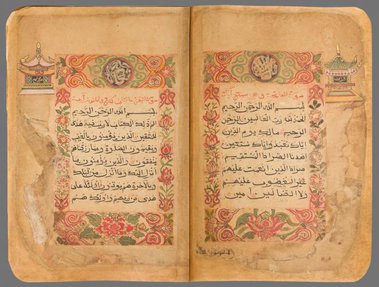 بسم الله الرحمن الرحيم
الحمد لله رب العالمين الرحمن
الرحيم مالك يوم الدين
اياك نعبد واياك نستعين
اهدنا الصراط المستقيم
صراط الذين انعمت عليهم
غير المغضوب عليهم
ولا الضالين
بسم الله الرحمن الرحيم
الم ذلك الكتاب لا ريب فيه هدى
للمتقين الذين يؤمنون بالغيب
ويقيمون الصلوة ومما رزقناهم
ينفقون والذين يؤمنون بما
انزل اليك وما انزل من قبلك
وبالاخرة هم يوقنون اولئك على
هدى من ربهم واولئك هم